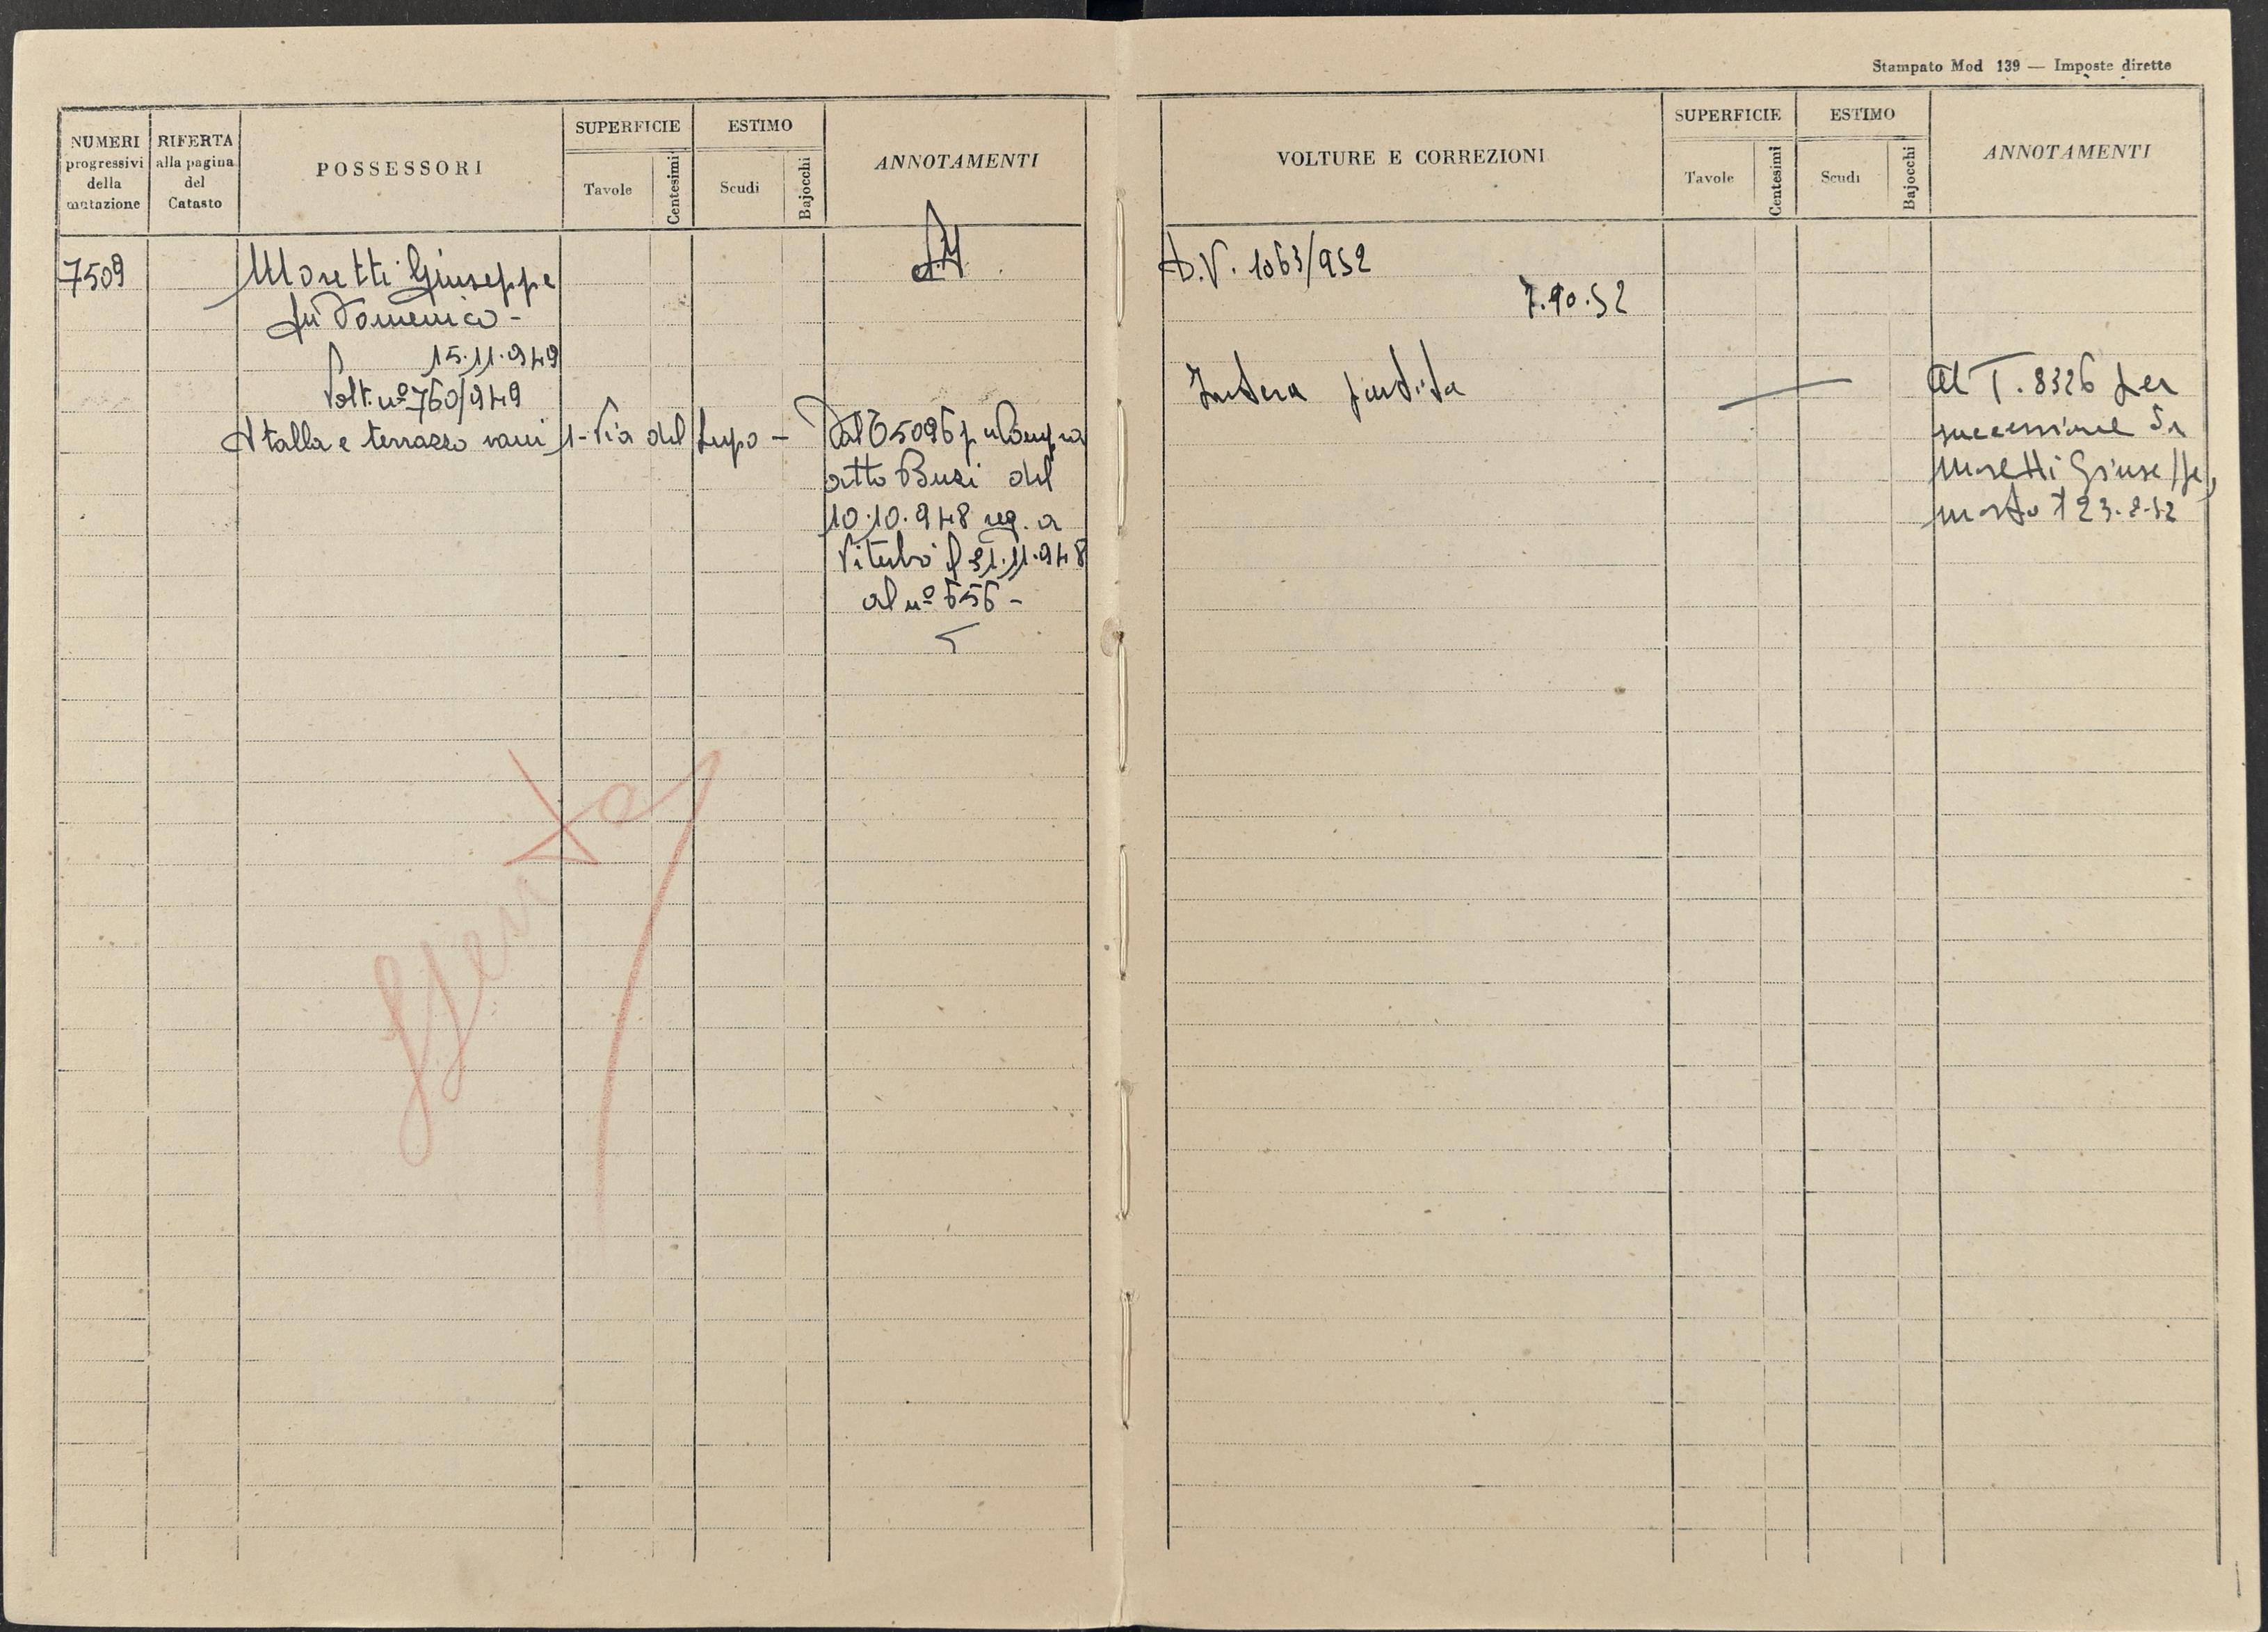 Stampato Mod 139 — Imposte dirette
NUMERI progressivi della mutazione
RIFERTA alla pagina del Catasto
POSSESSORI
SUPERFICIE
Tavole
Centesimi
ESTIMO
Scudi
Bajocchi
ANNOTAMENTI
7509
Moretti Giuseppe
fu Domenico -
15.11.949
Volt. nº 760/949
Stalla e terrazzo vani 1 - Via del Lupo -
Dal T 5096 p
atto Buzi del
10.10.948 reg. a
Viterbo 11.948
al nº 656 -
VOLTURE E CORREZIONI
SUPERFICIE
Tavole
Centesimi
ESTIMO
Scudi
Bajocchi
ANNOTAMENTI
D.V. 1063/952
7.10.52
Intera partita
Al T. 8326 per
successione di
Moretti Giuseppe,
morto
Esente